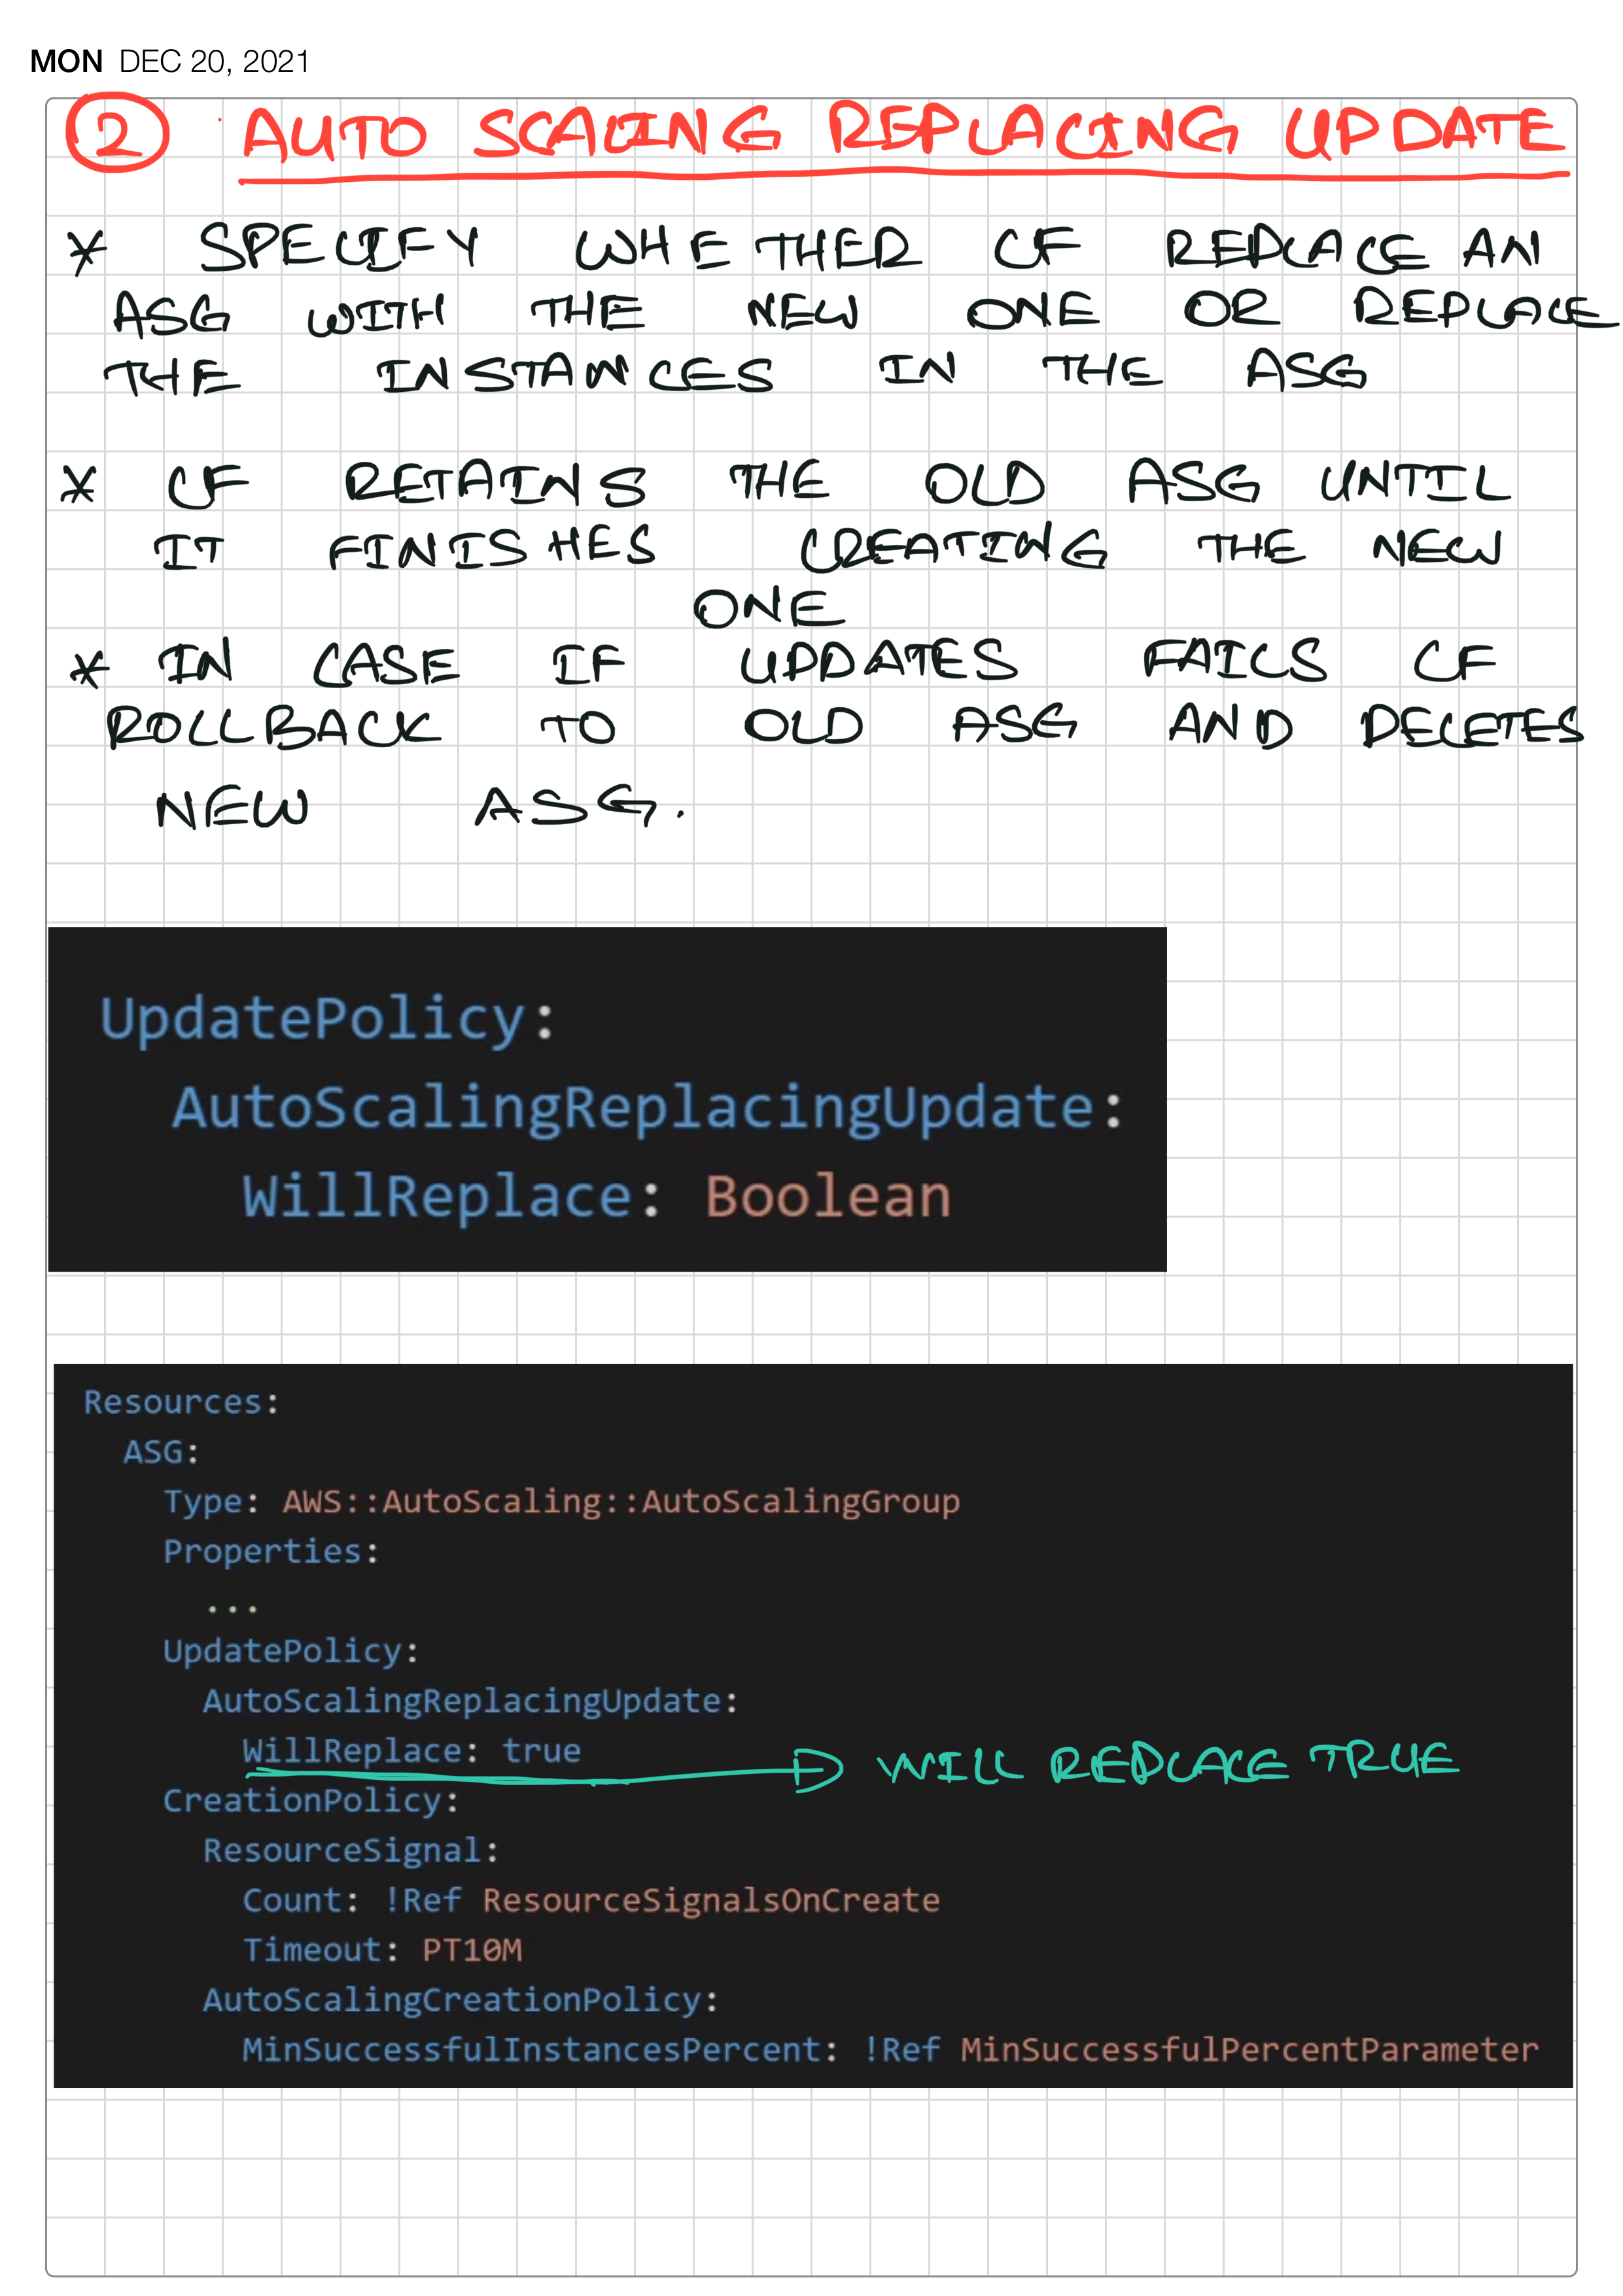 MON DEC 20, 2021
2 AUTO SCALING REPLACING UPDATE
* SPECIFY WHETHER CF REPLACE AN
ASG WITH THE NEW ONE OR REPLACE
THE INSTANCES IN THE ASG
* CF RETAINS THE OLD ASG UNTIL
IT FINISHES CREATING THE NEW
ONE
* IN CASE IF UPDATES FAILS CF
ROLLBACK TO OLD ASG AND DELETES
NEW ASG.
UpdatePolicy:
AutoScalingReplacingUpdate:
WillReplace: Boolean
Resources:
ASG:
Type: AWS::AutoScaling::AutoScalingGroup
Properties:
...
UpdatePolicy:
AutoScalingReplacingUpdate:
WillReplace: true WILL REPLACE TRUE
CreationPolicy:
ResourceSignal:
Count: !Ref ResourceSignalsOnCreate
Timeout: PT10M
AutoScalingCreationPolicy:
MinSuccessfulInstancesPercent: !Ref MinSuccessfulPercentParameter